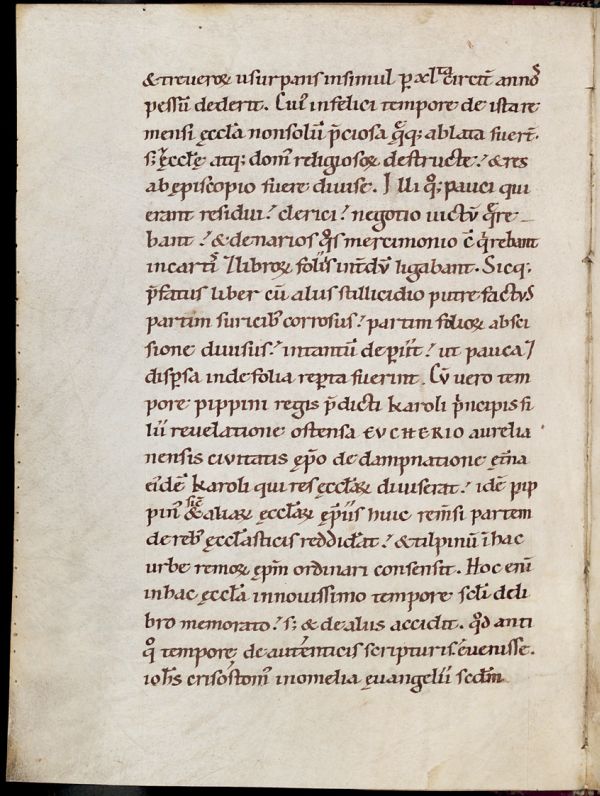 & treueroꝝ usurpans insimul ꝑ xl^ta circit̄ annoˢ
pessū dederit. Cuī infelici tempore de ista re
mensi ęccła nonsolū p̄ciosa quęq; ablata fuer̄t.
s; & ęccłę atq; dom̄ religiosoꝝ destructe? & res
ab ępiscopio fuere diuise. Illi q°; pauci qui
erant residui? clerici? negotio uictū quęre
bant? & denarios quos mercimonio c̄quirebant
in cartis ⁊ libroꝝ foliis int̄dū ligabant. Sicq;
p̄fatus liber cū aliis stillicidio putrefactus
partim suricib; corrosus? partim folioꝝ absci
sione diuisus? intantū deperiit? ut pauca ⁊
disꝑsa inde folia reꝑta fuerint. Cū uero tem
pore pippini regis p̄dicti karoli principis fi
lii reuelatione ostensa EVCHERIO aurelia
nensis ciuitatis ęp̄o de dampnatione ęt̄na
eidē karoli qui res ęccłaꝝ diuiserat? idē pip
pin̄ sic̄ & aliaꝝ ęccłaꝝ ęp̄iis huic rem̄si partem
de reb; ęccłasticis reddidat? & tilpinū ī hac
urbe remoꝝ ęp̄m ordinari consensit. Hoc enī
in hac ęccła innouissimo tempore scłi de li
bro memorato? s; & de aliis accidit. qd̄ anti
q° temporę de autenticis scripturis ēuenisse.
ioħs crisostom̄ in omelia ęuangelii scdm̄